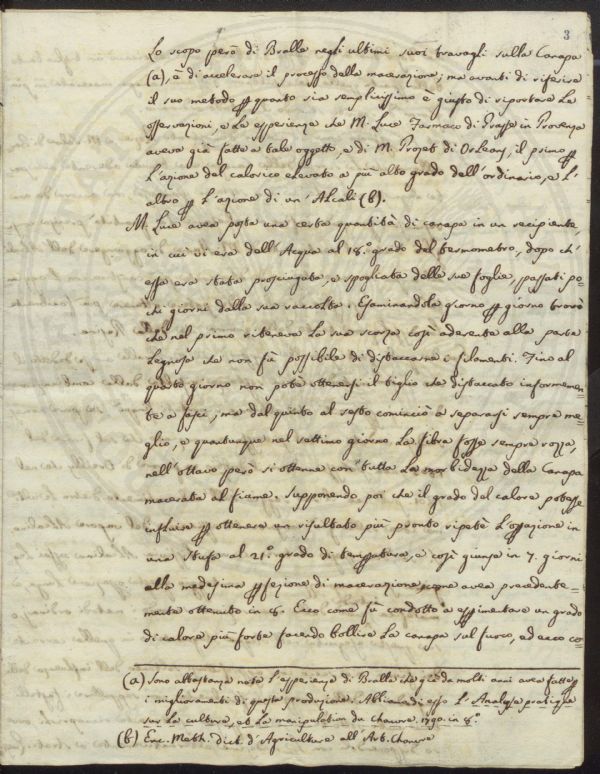 3
Lo scopo però di Bralle negli ultimi suoi travagli sulla Canapa
(a), è di accelerare il processo della macerazione; ma avanti di riferire
il suo metodo ꝑ quanto sia semplicissimo è giusto di riportare le
osservazioni, e le esperienze che M. Luce Farmaco di Grasse in Provenza
aveva già fatte a tale oggetto, e di M. Prozet di Orleans, il primo ꝑ
l'azione del calorico elevato a più alto grado dell'ordinario, e l'
altro ꝑ l'azione di un'Alcali (b).
M. Luce avea posta una certa quantità di canapa in un recipiente,
in cui vi era dell'Acqua al 18.° grado del termometro, dopo ch'
essa era stata prosciugata, e spogliata delle sue foglie, passati po=
chi giorni dalla sua raccolta. Esaminandola giorno ꝑ giorno trovò
che nel primo riteneva la sua scorza così aderente alla parte
legnosa che non fù possibile di distaccarne i filamenti. Fino al
quarto giorno non potè ottenersi il tiglio che distaccato informemen=
te a fasci; ma dal quinto al sesto cominciò a separarsi sempre me=
glio, e quantunque nel settimo giorno la fibra fosse sempre rozza,
nell'ottavo però si ottenne con tutta la morbidezza della Canapa
macerata al fiume. Supponendo poi che il grado del calore potesse
influire ꝑ ottenere un risultato più pronto ripetè l'operazione in
una stufa al 21.° grado di temperatura, e così giunse in 7. giorni
alla medesima ꝑfezione di macerazione, come avea precedente=
mente ottenuto in 8. Ecco come fù condotto a esperimentare un grado
di calore più forte facendo bollire la canapa sul fuoco, ed ecco co=
(a) Sono abbastanza note l'esperienze di Bralle che già da molti anni avea fatte ꝑ
i miglioramenti di questa produzione. Abbiamo di esso l'Analyse pratique
sur la culture, et la manipulation du chanvre. 1790. in 8.°
(b) Enc. Meth. dict. d'Agriculture all'Art. Chanvre